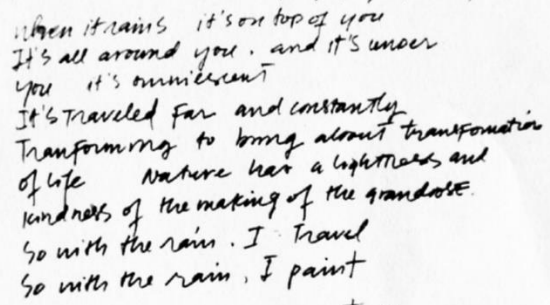 when it rains it's on top of you
It's all around you. and it's under
you it's omniescent
It's Traveled Far and constantly
Transforming to bring about transformation
of life Nature has a lightness and
kindness of the making of the grandose.
So with the rain. I Travel
So with the rain, I paint